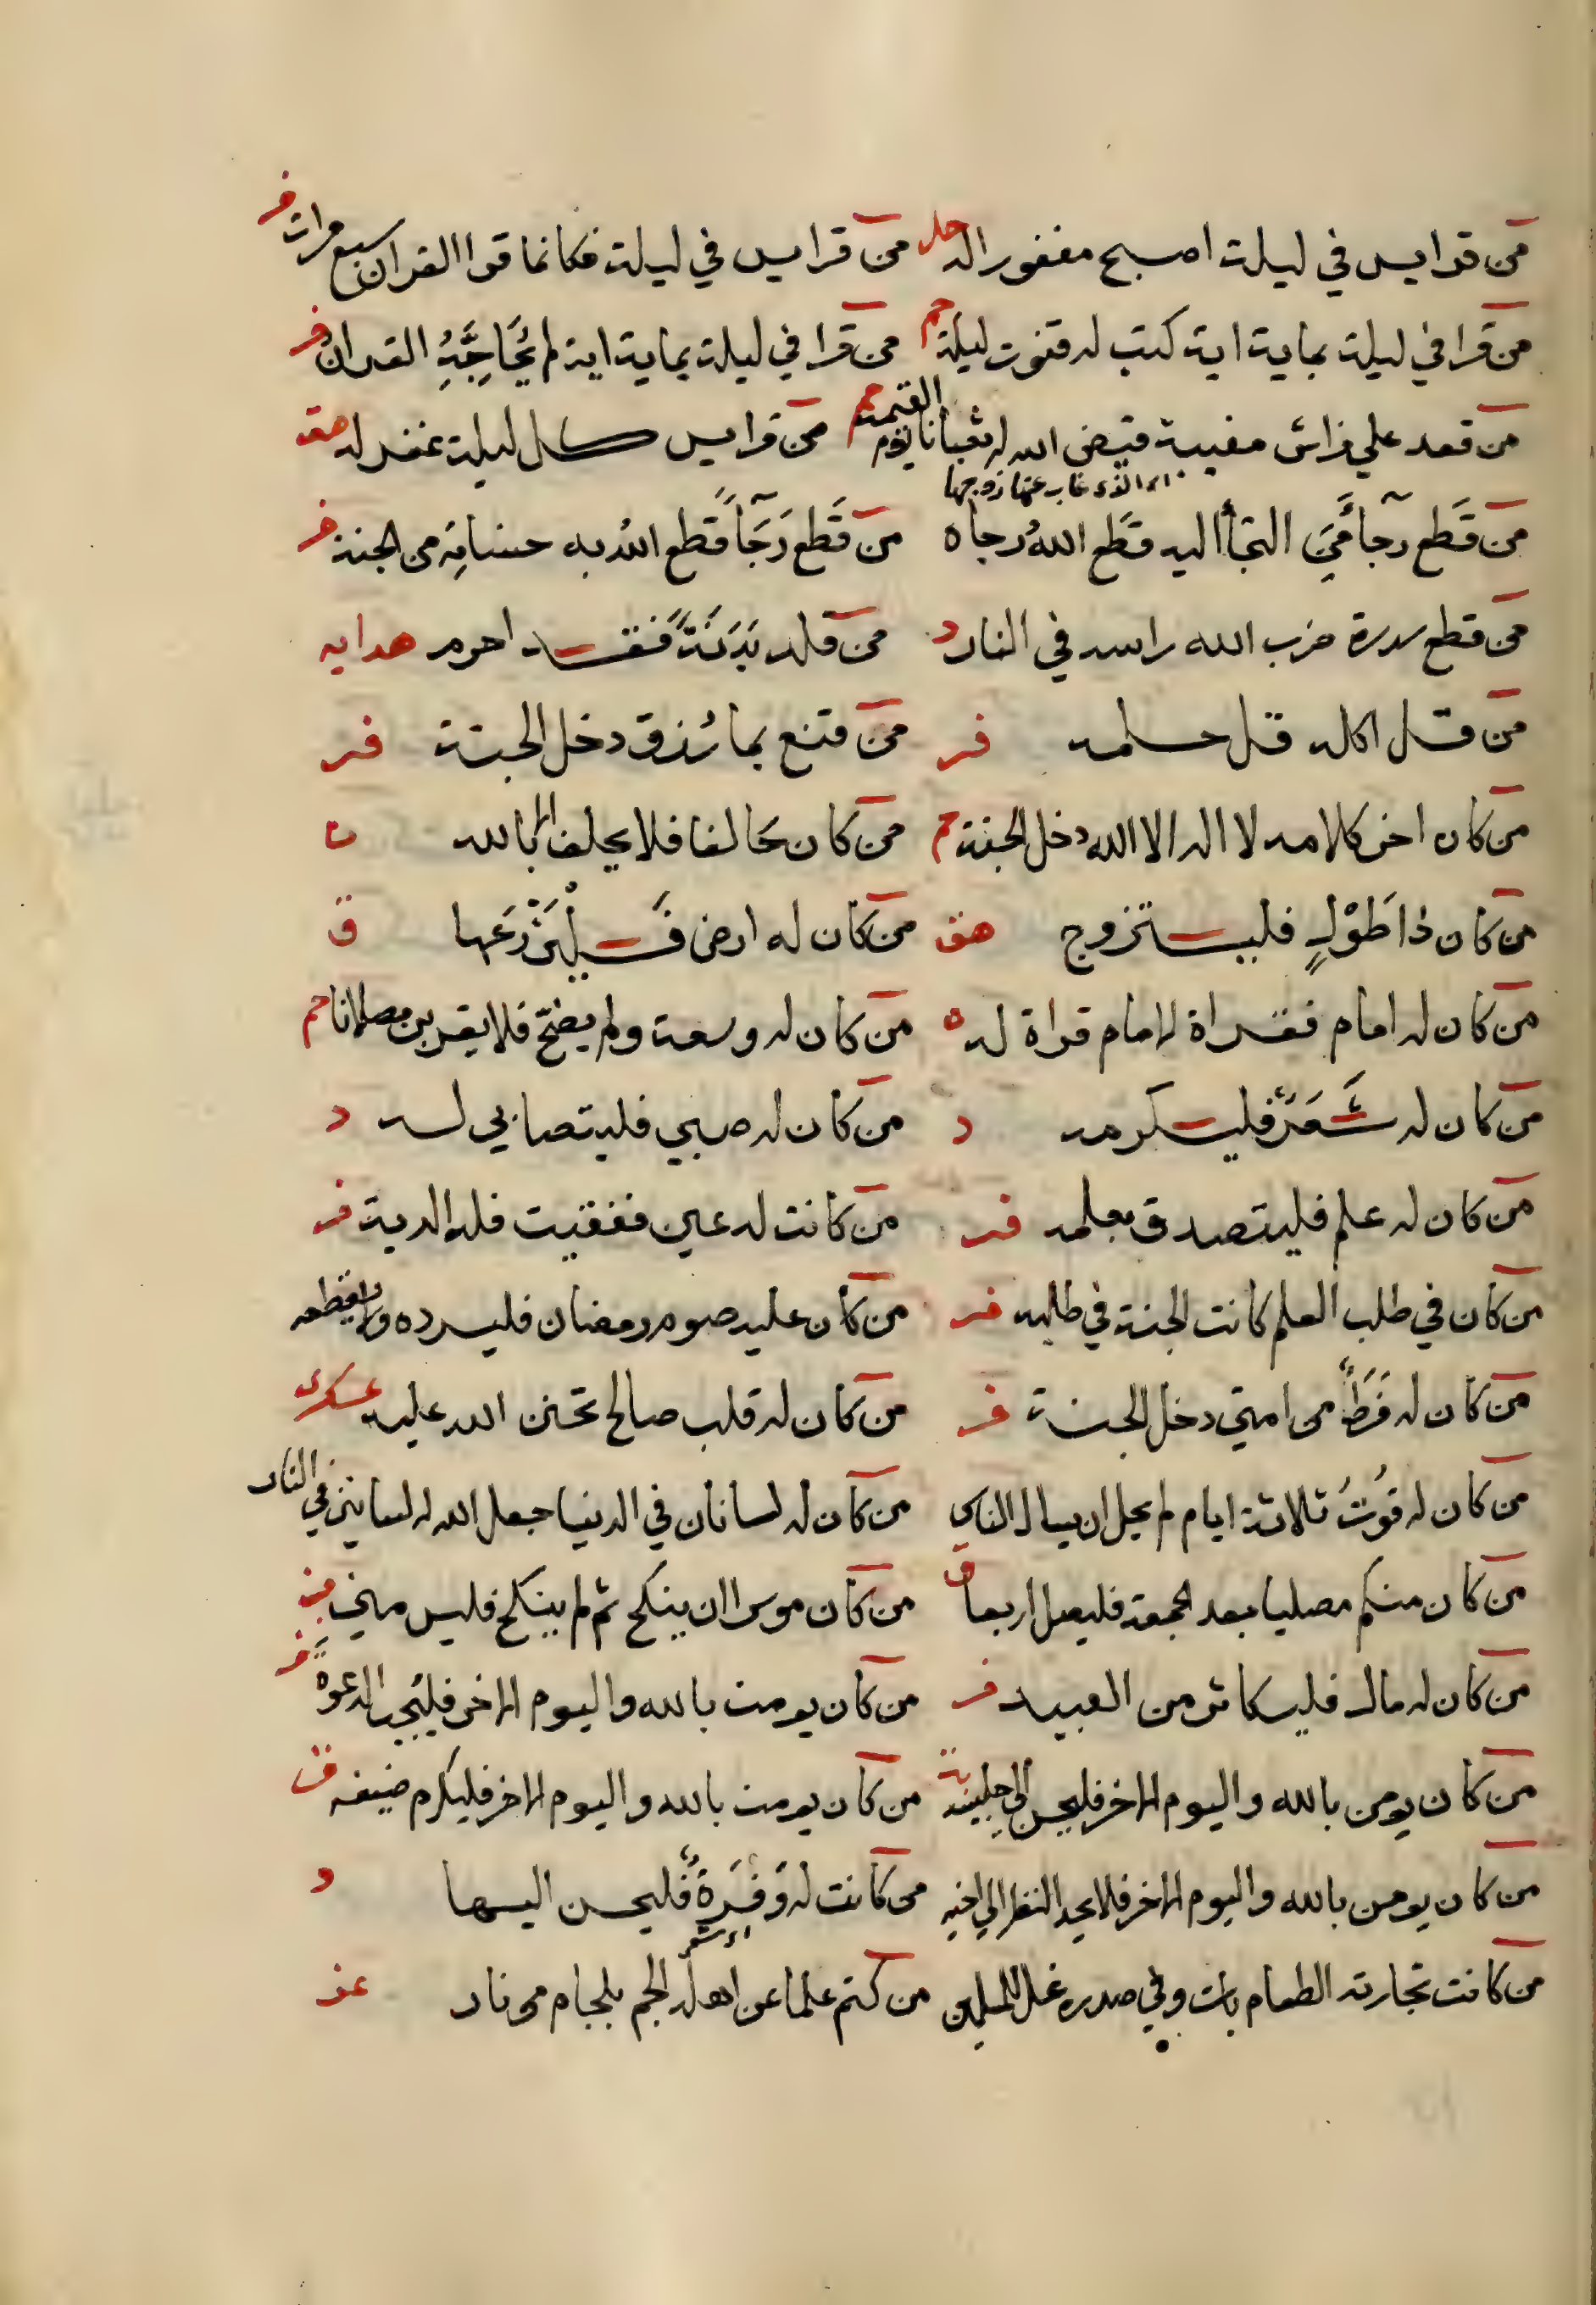 من قرا يس في ليلة اصبح مغفورا له حل من قرا يس في ليلة فكانما قرا القران سبع مرات فر
من قرا في ليلة بماية اية كتب له قنوت ليلة حم من قرا في ليلة بماية اية لم يُحَاجِّهِ القران فر
من قعد علي فراش مغيبة قيض الله له ثعبانا يوم القيمة حم من قرا يس كل ليلة غفر له هق
غاب عنها زوجها
من قَطع رجآ مَن التجأ اليه قَطع اللهُ رجاه من قَطع رَجَآً قَطع اللهُ به حسناتِه من الجنة فر
من قطع سدرة ضرب الله راسه في النار د من قلد بَدَنَةً فَقَد احرم هدايه
من قل اكله قل حلمه فر من قنع بما رُزق دخل الجنة فر
من كان اخر كلامه لا اله الا الله دخل الجنة حم من كان حالفا فلا يحلف الا بالله ن
من كان ذا طَوْلٍ فليتزوج هق من كان له ارض فَلْيَزْرَعها ق
من كان له امام فقراة الامام قراة له من كان له وسعة ولم يضحّ فلا يقربن مصلانا حم
من كان له شَعَرٌ فليكرمه د من كان له صبي فليتصابي له د
من كان له علم فليتصدق بعلمه فر من كانت له عين ففقيت فله الدية فر
من كان في طلب العلم كانت الجنة في طلبه فر من كان عليه صوم رمضان فليسرده ولا يقطعه
من كان له فَرَطٌ من امتي دخل الجنة فر من كان له قلب صالح تحنن الله عليه عسكرى
من كان له قُوتُ ثلاثة ايام لم يحل ان يسال الناس من كان له لسانان في الدنيا جعل الله له لسانين في النار
من كان منكم مصليا بعد الجمعة فليصل اربعا ق من كان موسرا ان ينكح ثم لم ينكح فليس مني
من كان له مال فليكاثر من العبيد فر من كان يومن بالله واليوم الاخر فليُجب الدعوةَ فر
من كان يومن بالله واليوم الاخر فليحسن الي من كان يومن بالله واليوم الاخر فليكرم ضيفه ق
من كان يومن بالله واليوم الاخر فلا يحد النظر الي اخيه من كانت له وَفرَةٌ فليحسن اليها د
من كانت تجارته الطعام بات وفي صدره غل للمسلمين من كتم علما عن اهله الجم بلجام من نار عد